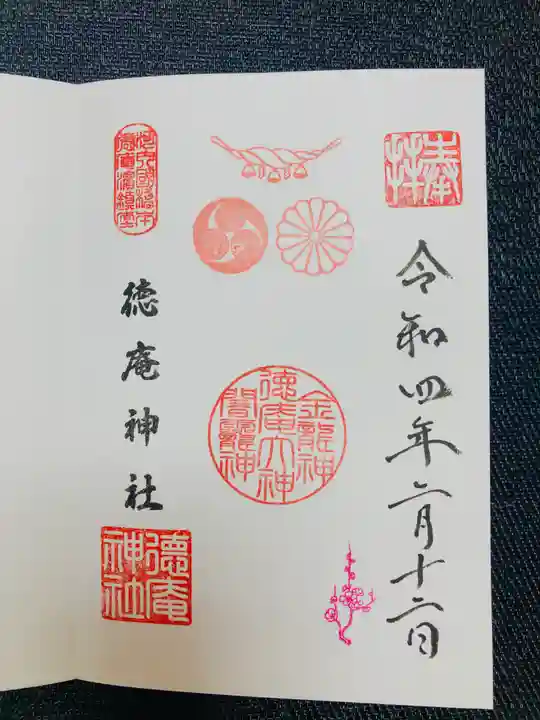 奉拝
令和四年二月十二日
金龍神
徳庵大神
闇龗神
徳庵神社
徳庵神社